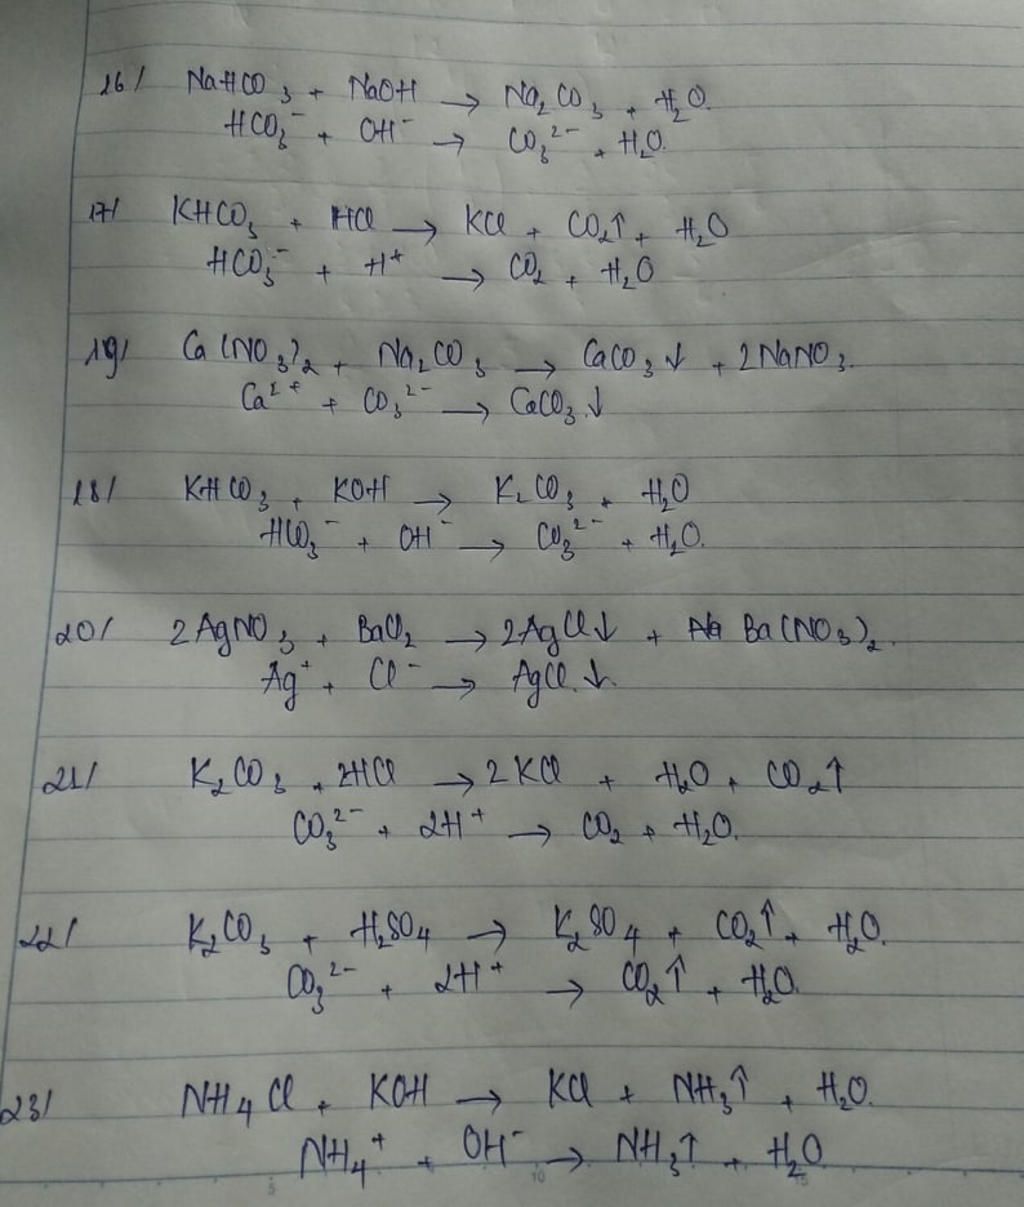 16/ NaHCO₃ + NaOH → Na₂CO₃ + H₂O.
HCO₃⁻ + OH⁻ → CO₃²⁻ + H₂O.
17/ KHCO₃ + HCl → KCl + CO₂↑ + H₂O
HCO₃⁻ + H⁺ → CO₂ + H₂O
19/ Ca(NO₃)₂ + Na₂CO₃ → CaCO₃↓ + 2NaNO₃.
Ca²⁺ + CO₃²⁻ → CaCO₃↓
18/ KHCO₃ + KOH → K₂CO₃ + H₂O
HCO₃⁻ + OH⁻ → CO₃²⁻ + H₂O.
20/ 2AgNO₃ + BaCl₂ → 2AgCl↓ + Ba(NO₃)₂.
Ag⁺ + Cl⁻ → AgCl.↓.
21/ K₂CO₃ + 2HCl → 2KCl + H₂O + CO₂↑
CO₃²⁻ + 2H⁺ → CO₂ + H₂O.
22/ K₂CO₃ + H₂SO₄ → K₂SO₄ + CO₂↑ + H₂O.
CO₃²⁻ + 2H⁺ → CO₂↑ + H₂O.
23/ NH₄Cl + KOH → KCl + NH₃↑ + H₂O.
NH₄⁺ + OH⁻ → NH₃↑ + H₂O
5 10 15